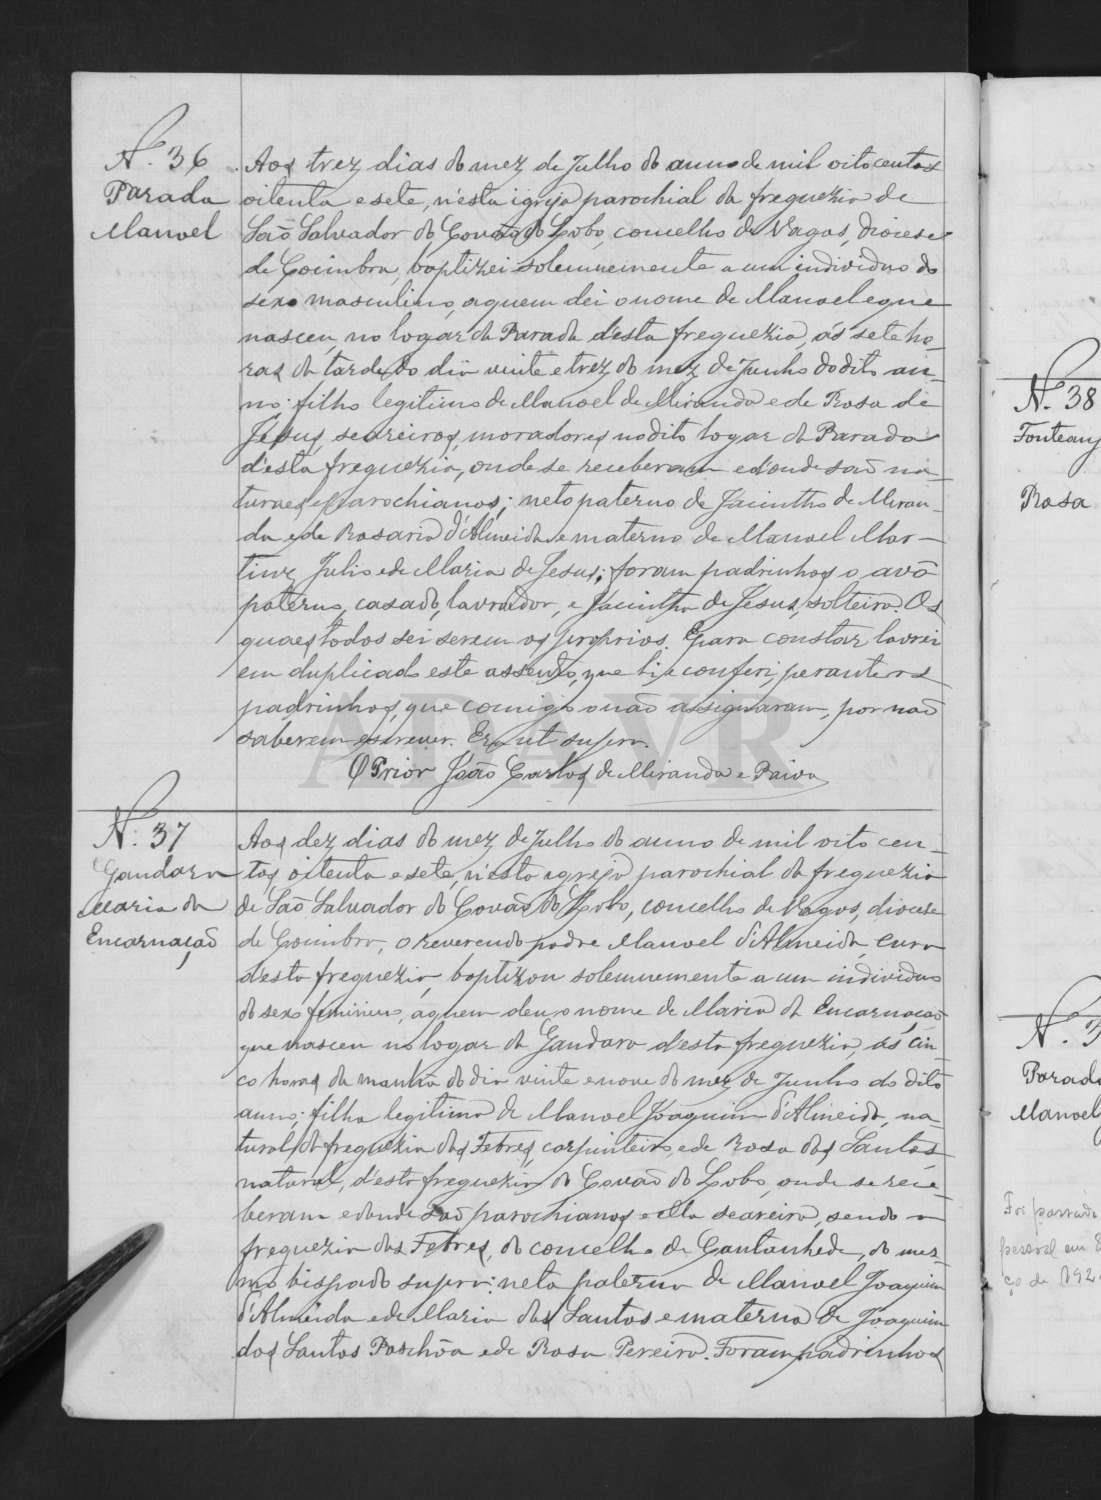 Nº. 36
Parada
Manoel
Aos trez dias do mez de Julho do anno de mil oitocentos
oitenta e sete, n'esta igreja parochial da freguezia de
São Salvador do Covão do Lobo, concelho de Vagos, diocese
de Coimbra, baptizei solemnemente a um individuo do
sexo masculino, a quem dei o nome de Manoel e que
nasceu, no logar da Parada d'esta freguezia, ás sete ho-
ras da tarde do dia vinte e trez do mez de Junho do dito an-
no: filho legitimo de Manoel de Miranda e de Rosa de
Jesus, seareiros, moradores no dito logar da Parada
d'esta freguezia, onde se receberam e d'onde são na-
turaes e parochianos; neto paterno de Jacintho de Miran-
da e de Rosaria d'Almeida e materno de Manoel Mar-
tins Julio e de Maria de Jesus; foram padrinhos o avô
paterno, casado, lavrador, e Jacintha de Jesus, solteira. Os
quaes todos sei serem os proprios. E para constar lavrei
em duplicado este assento, que li e conferi perante os
padrinhos, que comigo o não assignaram, por não
saberem escrever. Era ut supra.
O Prior João Carlos de Miranda e Paiva
Nº. 37
Gandara
Maria da
Encarnação
Aos dez dias do mez de Julho do anno de mil oito cen-
tos oitenta e sete, n'esta egreja parochial da freguezia
de São Salvador do Covão do Lobo, concelho de Vagos, diocese
de Coimbra, o Reverendo padre Manoel d'Almeida, cura
d'esta freguezia, baptizou solemnemente a um individuo
do sexo feminino, a quem deu o nome de Maria da Encarnação
que nasceu no logar da Gandara d'esta freguezia, ás cin-
co horas da manhã do dia vinte e nove do mez de Junho do dito
anno; filha legitima de Manoel Joaquim d'Almeida, na-
tural da freguezia das Febres, carpinteiro, e de Rosa dos Santos
natural, d'esta freguezia do Covão do Lobo, onde se rece-
beram e donde são parochianos e ella seareira, sendo a
freguezia das Febres, do concelho de Cantanhede, do mes-
mo bispado supra: neta paterna de Manoel Joaquim
d'Almeida e de Maria dos Santos e materna de Joaquim
dos Santos Paschôa e de Rosa Pereira. Foram padrinhos
ADAVR
Nº. 38
Rosa
Nº. 3
Parada
Manoel